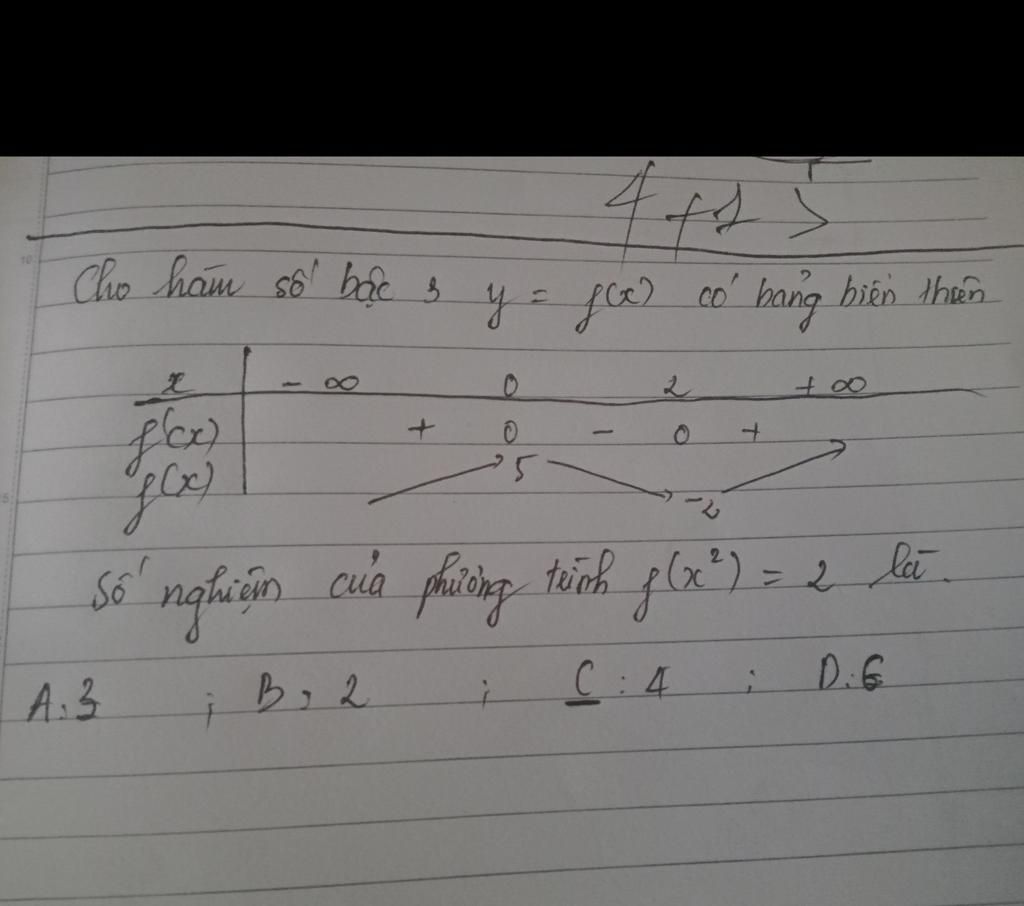 4 + 1 >
10
Cho hàm số bậc 3 y = f(x) có bảng biến thiên
x - ∞ 0 2 + ∞
f'(x) + 0 - 0 +
f(x) 5 -2
Số nghiệm của phương trình f(x²) = 2 là.
A: 3 ; B: 2 ; C: 4 ; D: 6